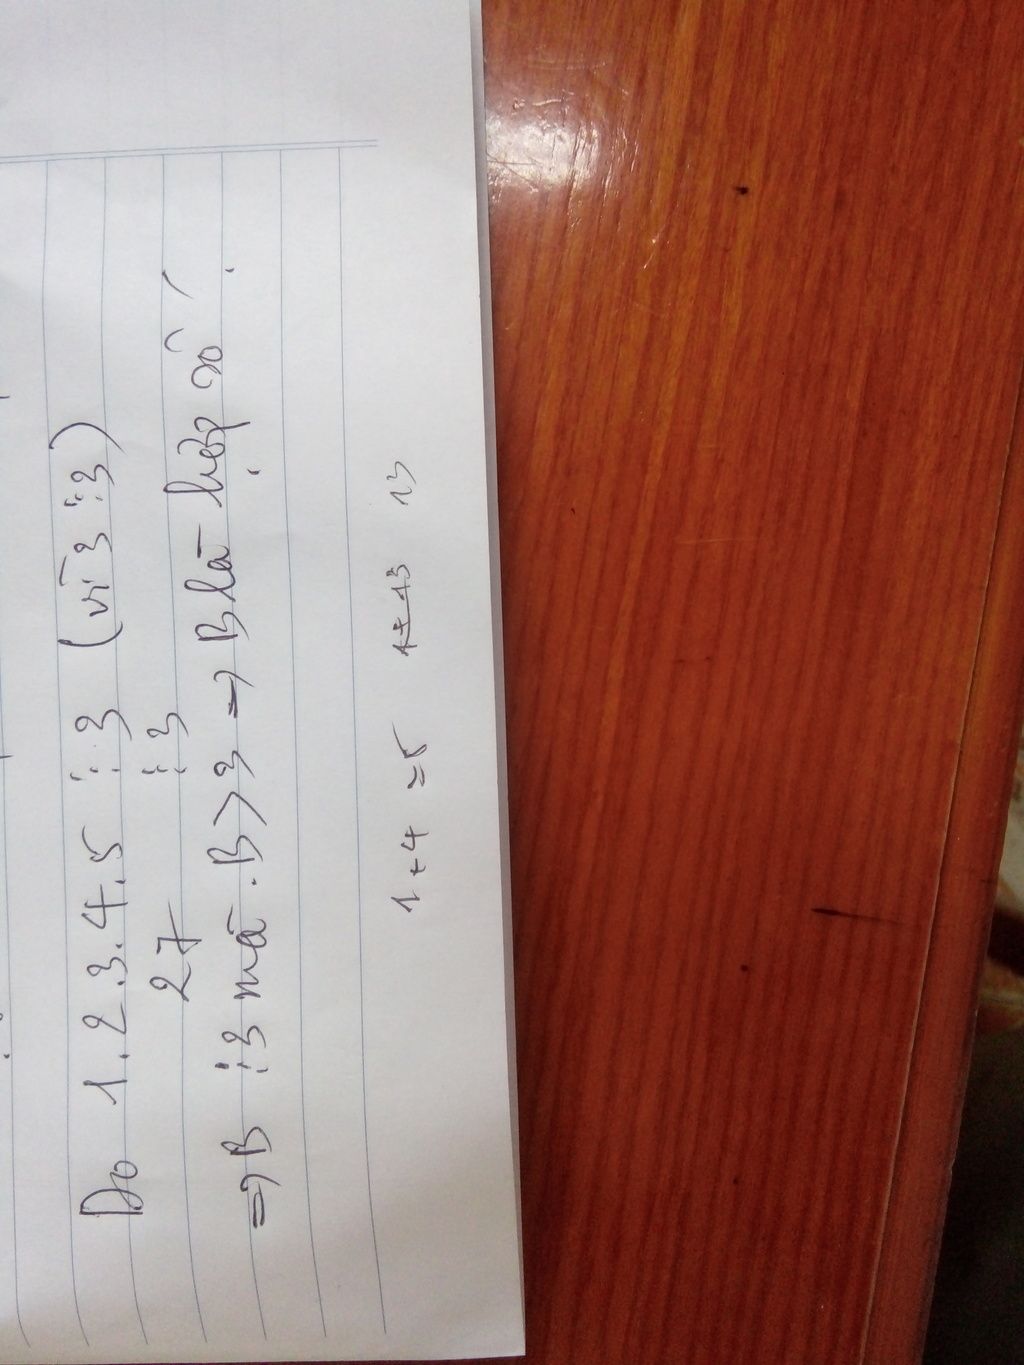 Do 1.2.3.4.5 ⋮ 3 (vì 3 ⋮ 3)
27 ⋮ 3
=> B ⋮ 3 mà B > 3 => B là hợp số.
1 + 4 = 5 13